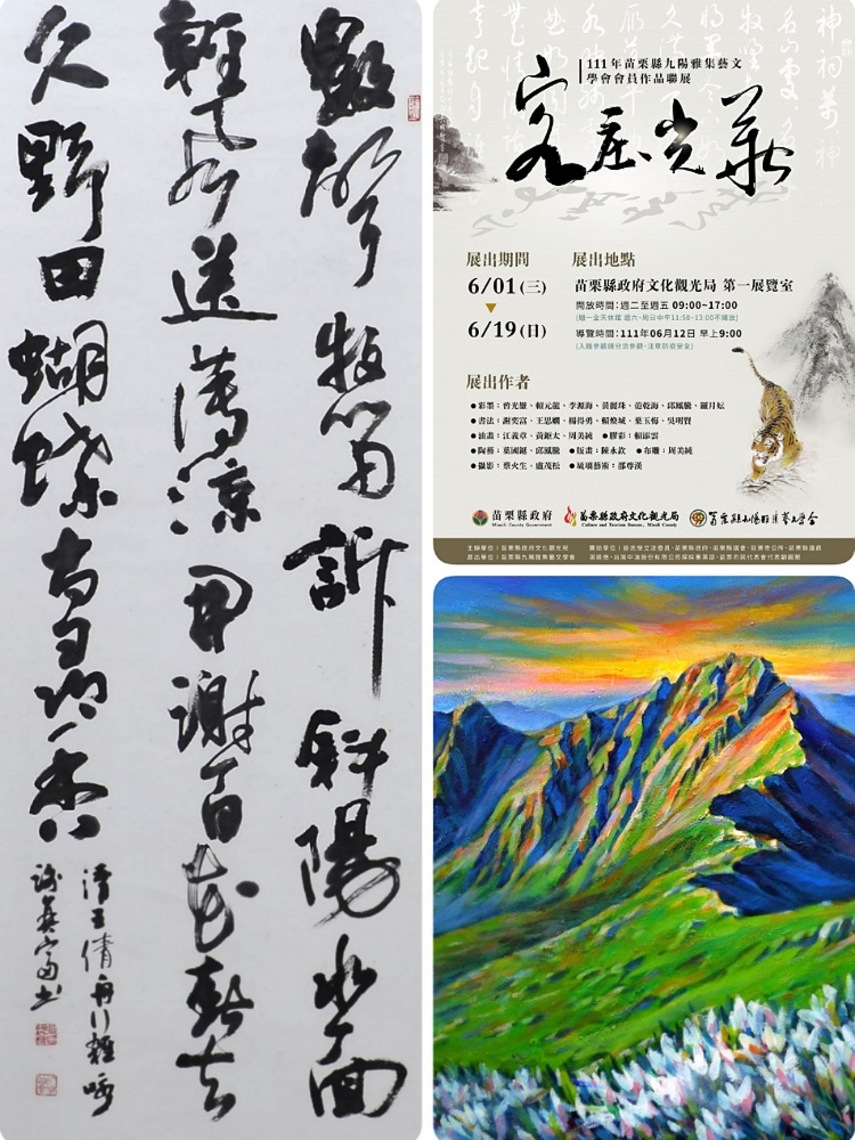 數聲牧笛訴斜陽水面
輕風送薄涼開謝百花春去
久野田蝴蝶尚尋香
清王倩舟行雜咏
謝奕富書
111年苗栗縣九陽雅集藝文
學會會員作品聯展
客庄光華
展出期間
6/01(三)
6/19(日)
展出地點
苗栗縣政府文化觀光局 第一展覽室
開放時間:週二至週五 09:00~17:00
(週一全天休館 週六、周日中午11:50~13:00不開放)
導覽時間:111年06月12日 早上9:00
(入館參觀請分流參觀、注意防疫安全)
展出作者
●彩墨:曾光雄、賴元龍、李源海、黃麗珠、范乾海、邱鳳騰、羅月妘
●書法:謝奕富、王思嫻、楊得勇、賴俊城、葉玉梅、吳明賢
●油畫:江義章、黃鉅太、周美純 ●膠彩:賴添雲
●陶藝:葉國鋌、邱鳳騰 ●版畫:陳永欽 ●布雕:周美純
●攝影:蔡火生、盧茂松 ●琉璃藝術:邵尊漢
苗栗縣政府
Miaoli County Government
苗栗縣政府文化觀光局
Culture and Tourism Bureau, Miaoli County
苗栗縣九陽雅集藝文學會
主辦單位:苗栗縣政府文化觀光局
展出單位:苗栗縣九陽雅集藝文學會